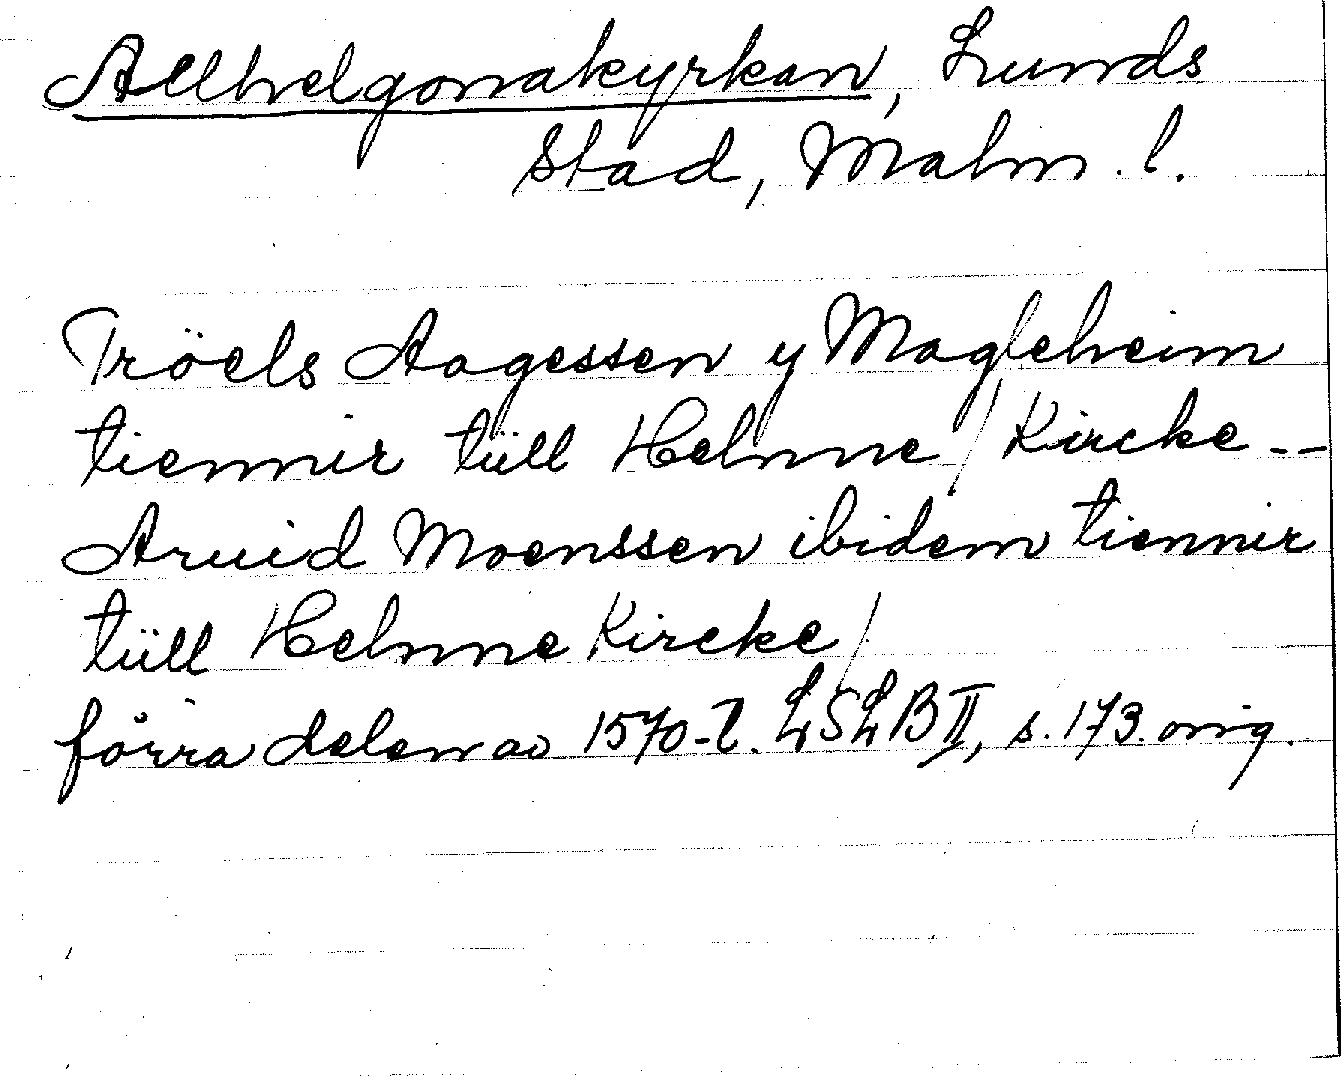 Allhelgonakyrkan, Lunds
Stad, Malm. l.
Tröels Aagessen y Magleheim
tiennir tüll Helnne / Kircke --
Aruid Moenssen ibidem tiennir
tüll Helnne Kircke /
förra delen av 1570-t. LSLB II, s. 173. orig.